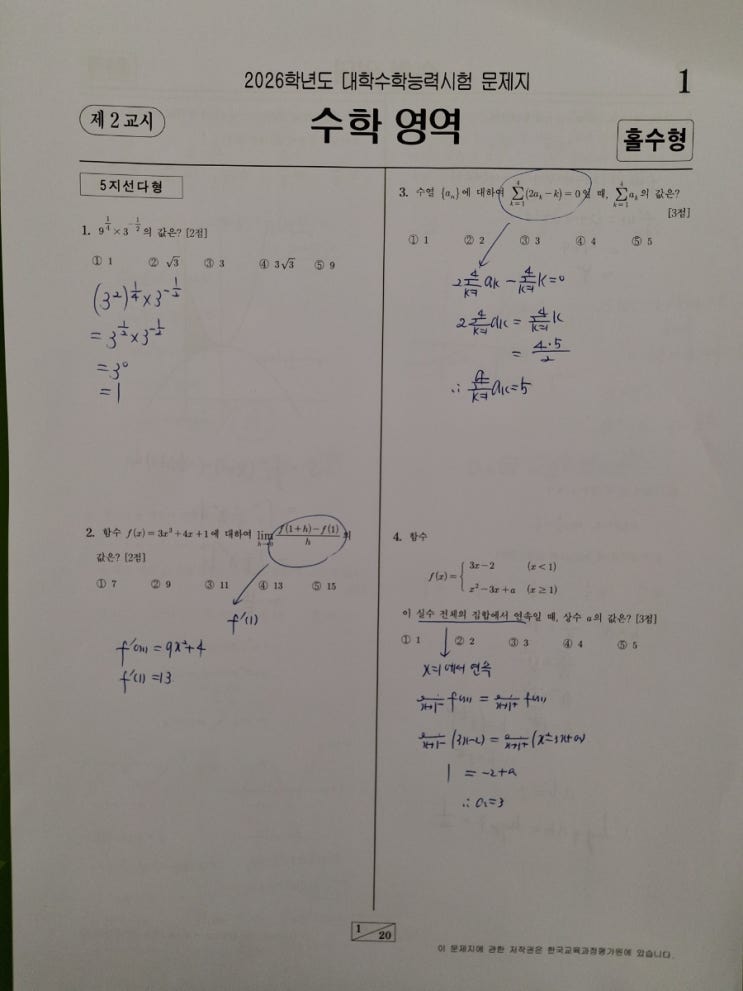 2026학년도 대학수학능력시험 문제지
1
제 2 교시
수학 영역
홀수형
5지선다형
1. 9^{\frac{1}{4}} × 3^{-\frac{1}{2}} 의 값은? [2점]
① 1 ② √3 ③ 3 ④ 3√3 ⑤ 9
(3²)^{\frac{1}{4}} × 3^{-\frac{1}{2}}
= 3^{\frac{1}{2}} × 3^{-\frac{1}{2}}
= 3⁰
= 1
2. 함수 f(x) = 3x³ + 4x + 1 에 대하여 \lim_{h→0} \frac{f(1+h) − f(1)}{h} 의
값은? [2점]
① 7 ② 9 ③ 11 ④ 13 ⑤ 15
f'(1)
f'(x) = 9x² + 4
f'(1) = 13
3. 수열 {a_n}에 대하여 \sum_{k=1}^{4} (2a_k − k) = 0일 때, \sum_{k=1}^{4} a_k 의 값은?
[3점]
① 1 ② 2 ③ 3 ④ 4 ⑤ 5
2\sum_{k=1}^{4} a_k − \sum_{k=1}^{4} k = 0
2\sum_{k=1}^{4} a_k = \sum_{k=1}^{4} k
= \frac{4·5}{2}
∴ \sum_{k=1}^{4} a_k = 5
4. 함수
f(x) = { 3x − 2 (x < 1)
x² − 3x + a (x ≥ 1)
이 실수 전체의 집합에서 연속일 때, 상수 a의 값은? [3점]
① 1 ② 2 ③ 3 ④ 4 ⑤ 5
x=1에서 연속
\lim_{x→1−} f(x) = \lim_{x→1+} f(x)
\lim_{x→1−} (3x−2) = \lim_{x→1+} (x²−3x+a)
1 = −2+a
∴ a=3
1
20
이 문제지에 관한 저작권은 한국교육과정평가원에 있습니다.